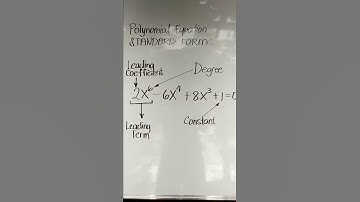 Polynomial Equation
STANDARD FORM:
Leading
Coefficient
Degree
2x⁶ - 6x⁴ + 8x³ + 1 = 0
Leading
Term
Constant